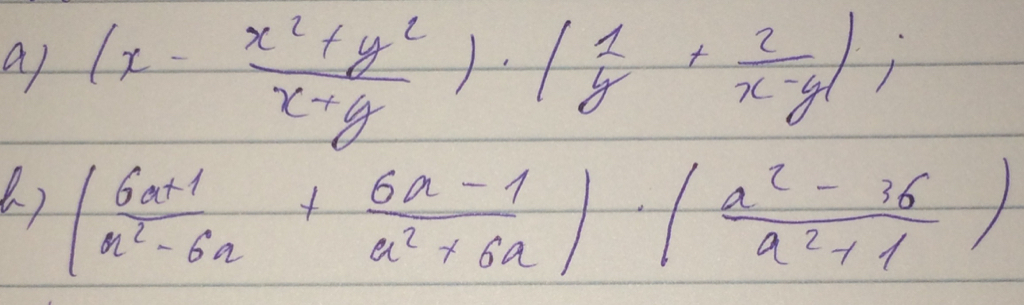 a) (x - \frac{x^2+y^2}{x+y}) \cdot (\frac{1}{y} + \frac{2}{x-y});
b) (\frac{6a+1}{a^2-6a} + \frac{6a-1}{a^2+6a}) \cdot (\frac{a^2-36}{a^2+1})